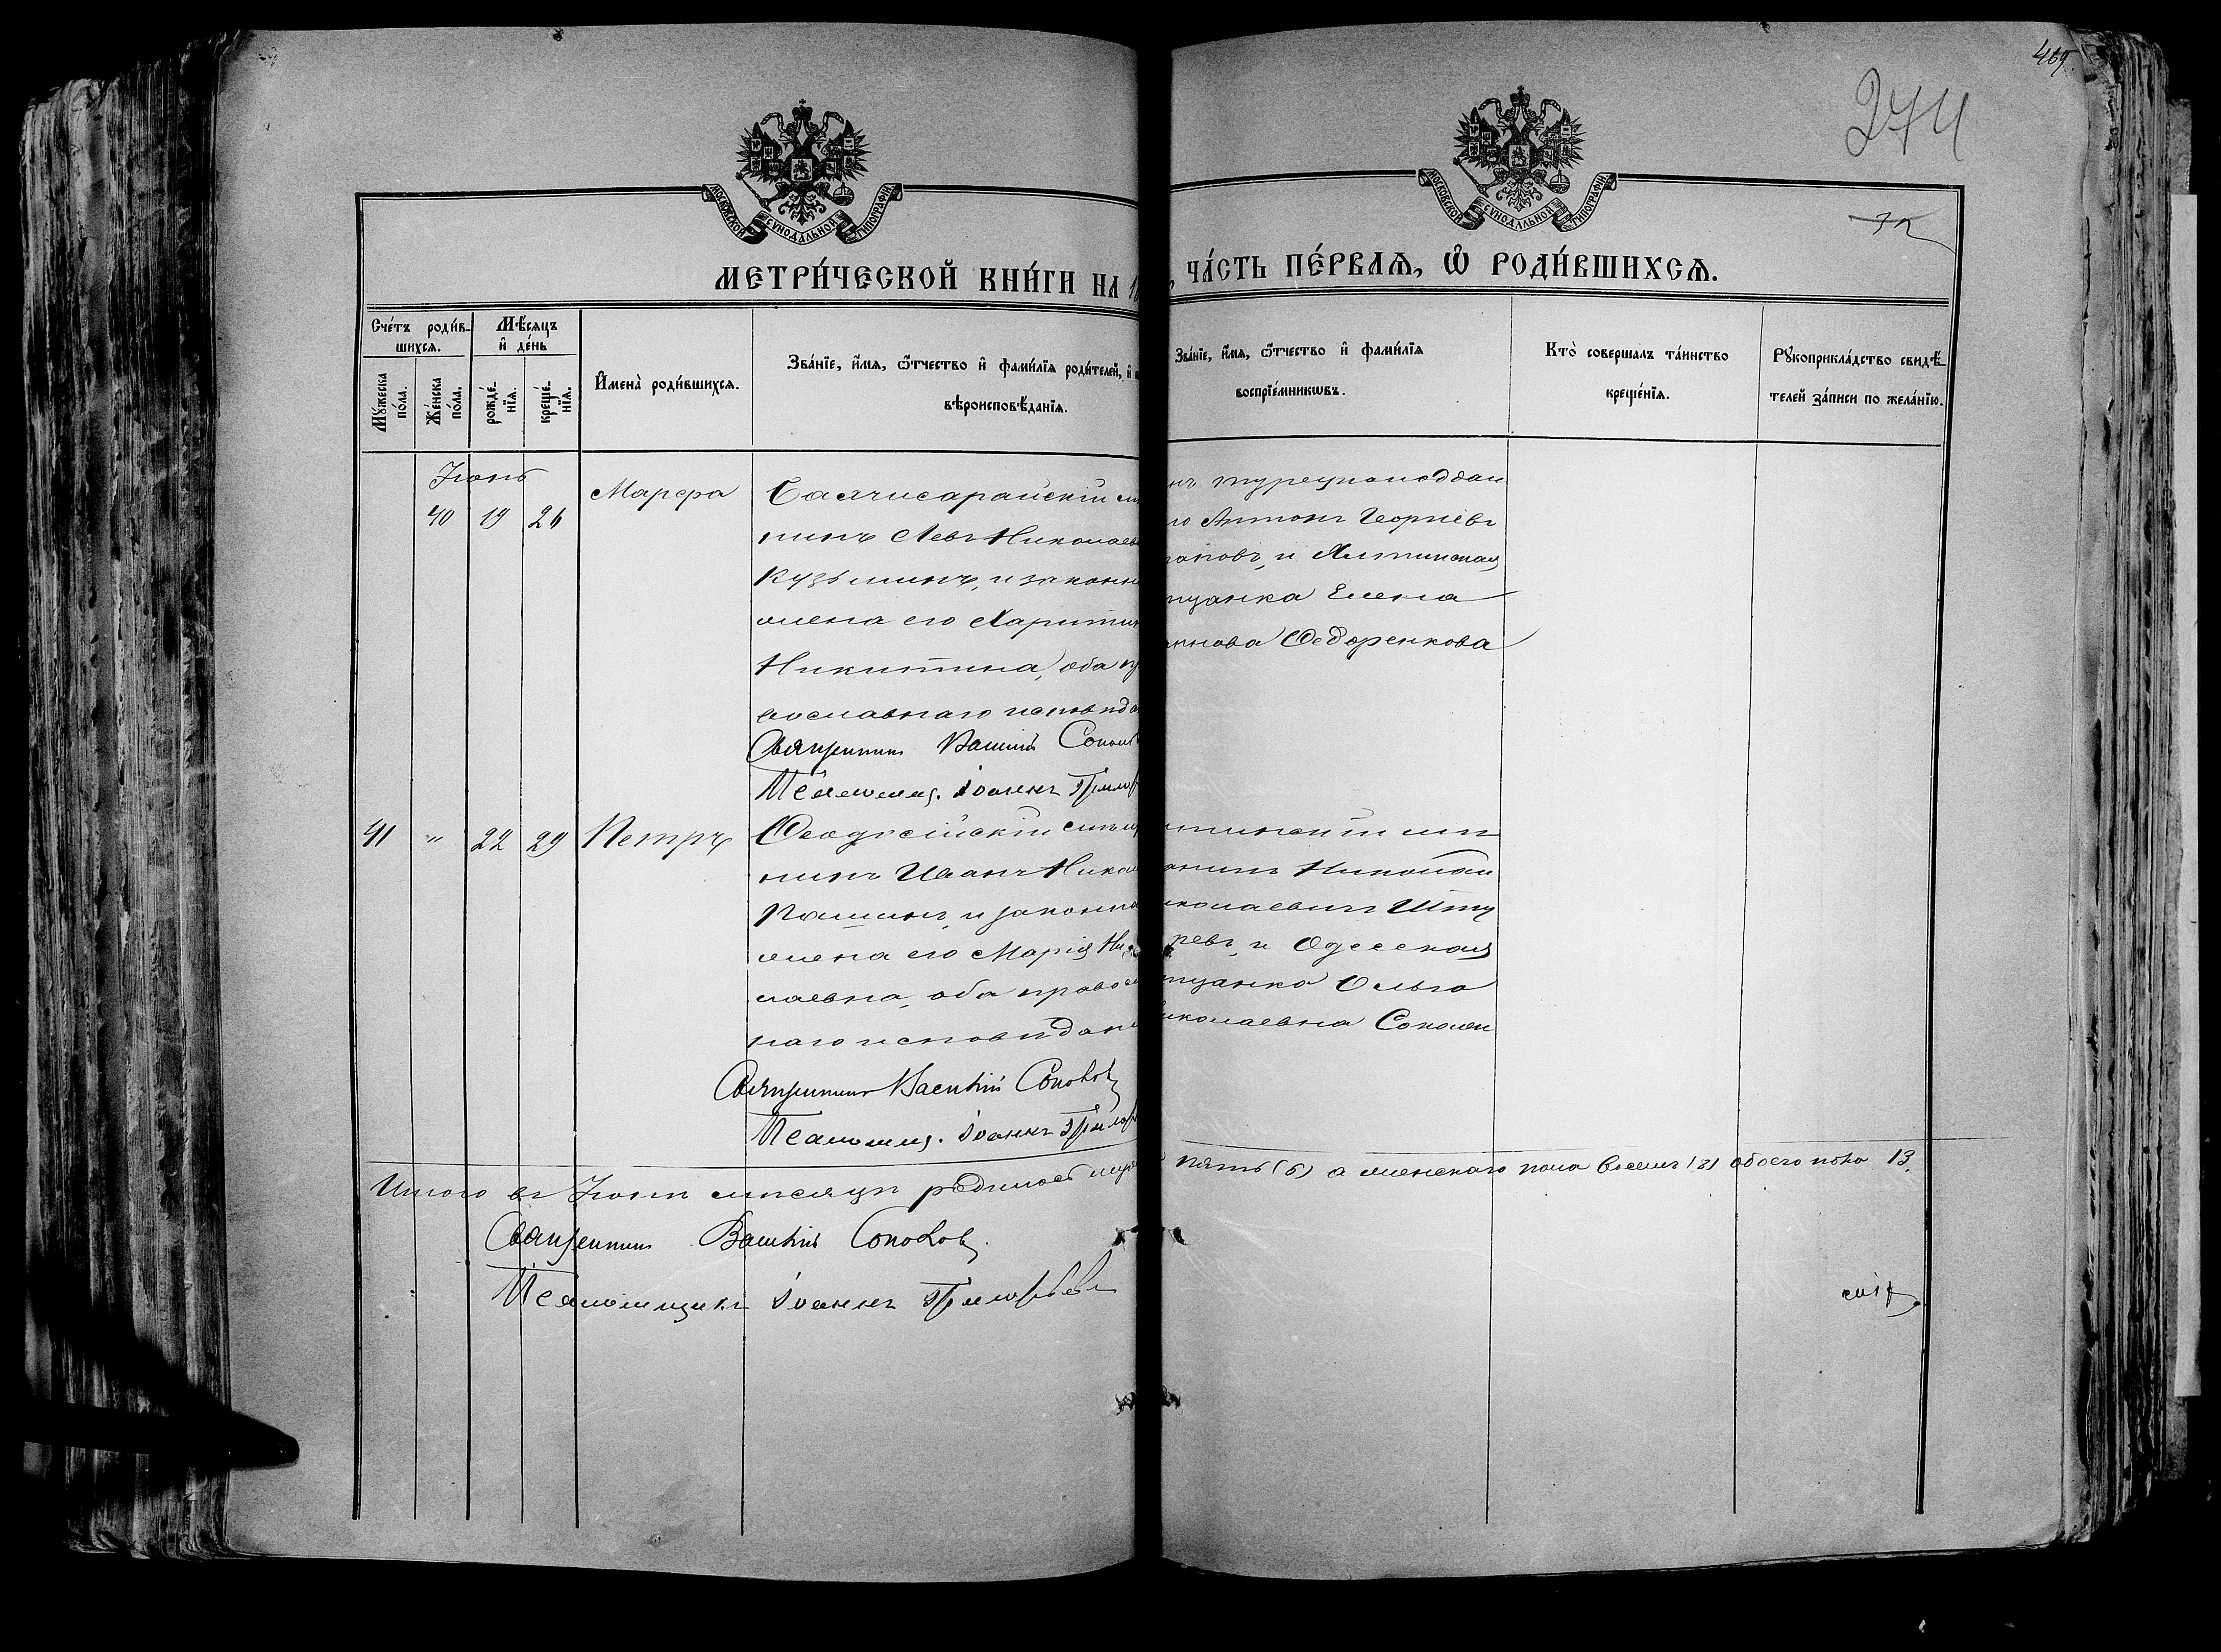 469.
274
МОСКОВСКОЙ СѴНОДАЛЬНОЙ ТИПОГРАФІИ
МОСКОВСКОЙ СѴНОДАЛЬНОЙ ТИПОГРАФІИ
МЕТРИ́ЧЕСКОЙ КНИ́ГИ НА 18
ЧА́СТЬ ПЕ́РВАѦ, Ѡ РОДИ́ВШИХСѦ.
Сче́тъ роди́в-
шихсѧ.
Мꙋжеска по́ла.
Же́нска по́ла.
Мѣ́сѧцъ
и҆ де́нь
рожде́-
нїѧ.
креще́-
нїѧ.
И҆мена̀ роди́вшихсѧ.
Зва́нїе, и҆́мѧ, ѻ҆́тчество и҆ фами́лїѧ роди́телей, и҆
вѣроисповѣ́данїѧ.
Зва́нїе, и҆́мѧ, ѻ҆́тчество и҆ фами́лїѧ
воспрїе́мникѡвъ.
Кто̀ соверша́лъ та́инство
креще́нїѧ.
Рꙋкоприкла́дство свидѣ́-
телей за́писи по жела́нїю.
Іюнь
40 19 26
Марфа
Бахчисарайскій мѣ
нинъ Левъ Николаев
Кузьминъ, и законн
жена его Харитин
Никитина, оба пр
вославнаго исповѣда
Священникъ Василій Соколов
Псаломщ. Іоаннъ Григор
нъ турецкоподдан
го Антонъ Георгіевъ
и Ялтинская
щанка Елена
Федоренкова
41 " 22 29
Петръ
Феодосійскій мѣщ
нинъ Иванъ Никол
и законна
жена его Марія Ни
лаевна, оба правосл
наго исповѣдан
Священникъ Василій Соколовъ
Псаломщ. Іоаннъ Григор
лтинскій мѣ
анинъ Николай
иколаевичъ
ревъ, и Одесская
щанка Ольга
иколаевна
Итого въ Іюнѣ мѣсяцѣ родилось муж
пять (5) а женскаго пола восемь (8) обоего пола 13.
Священникъ Василій Соколовъ.
Псаломщикъ Іоаннъ Григорьевъ